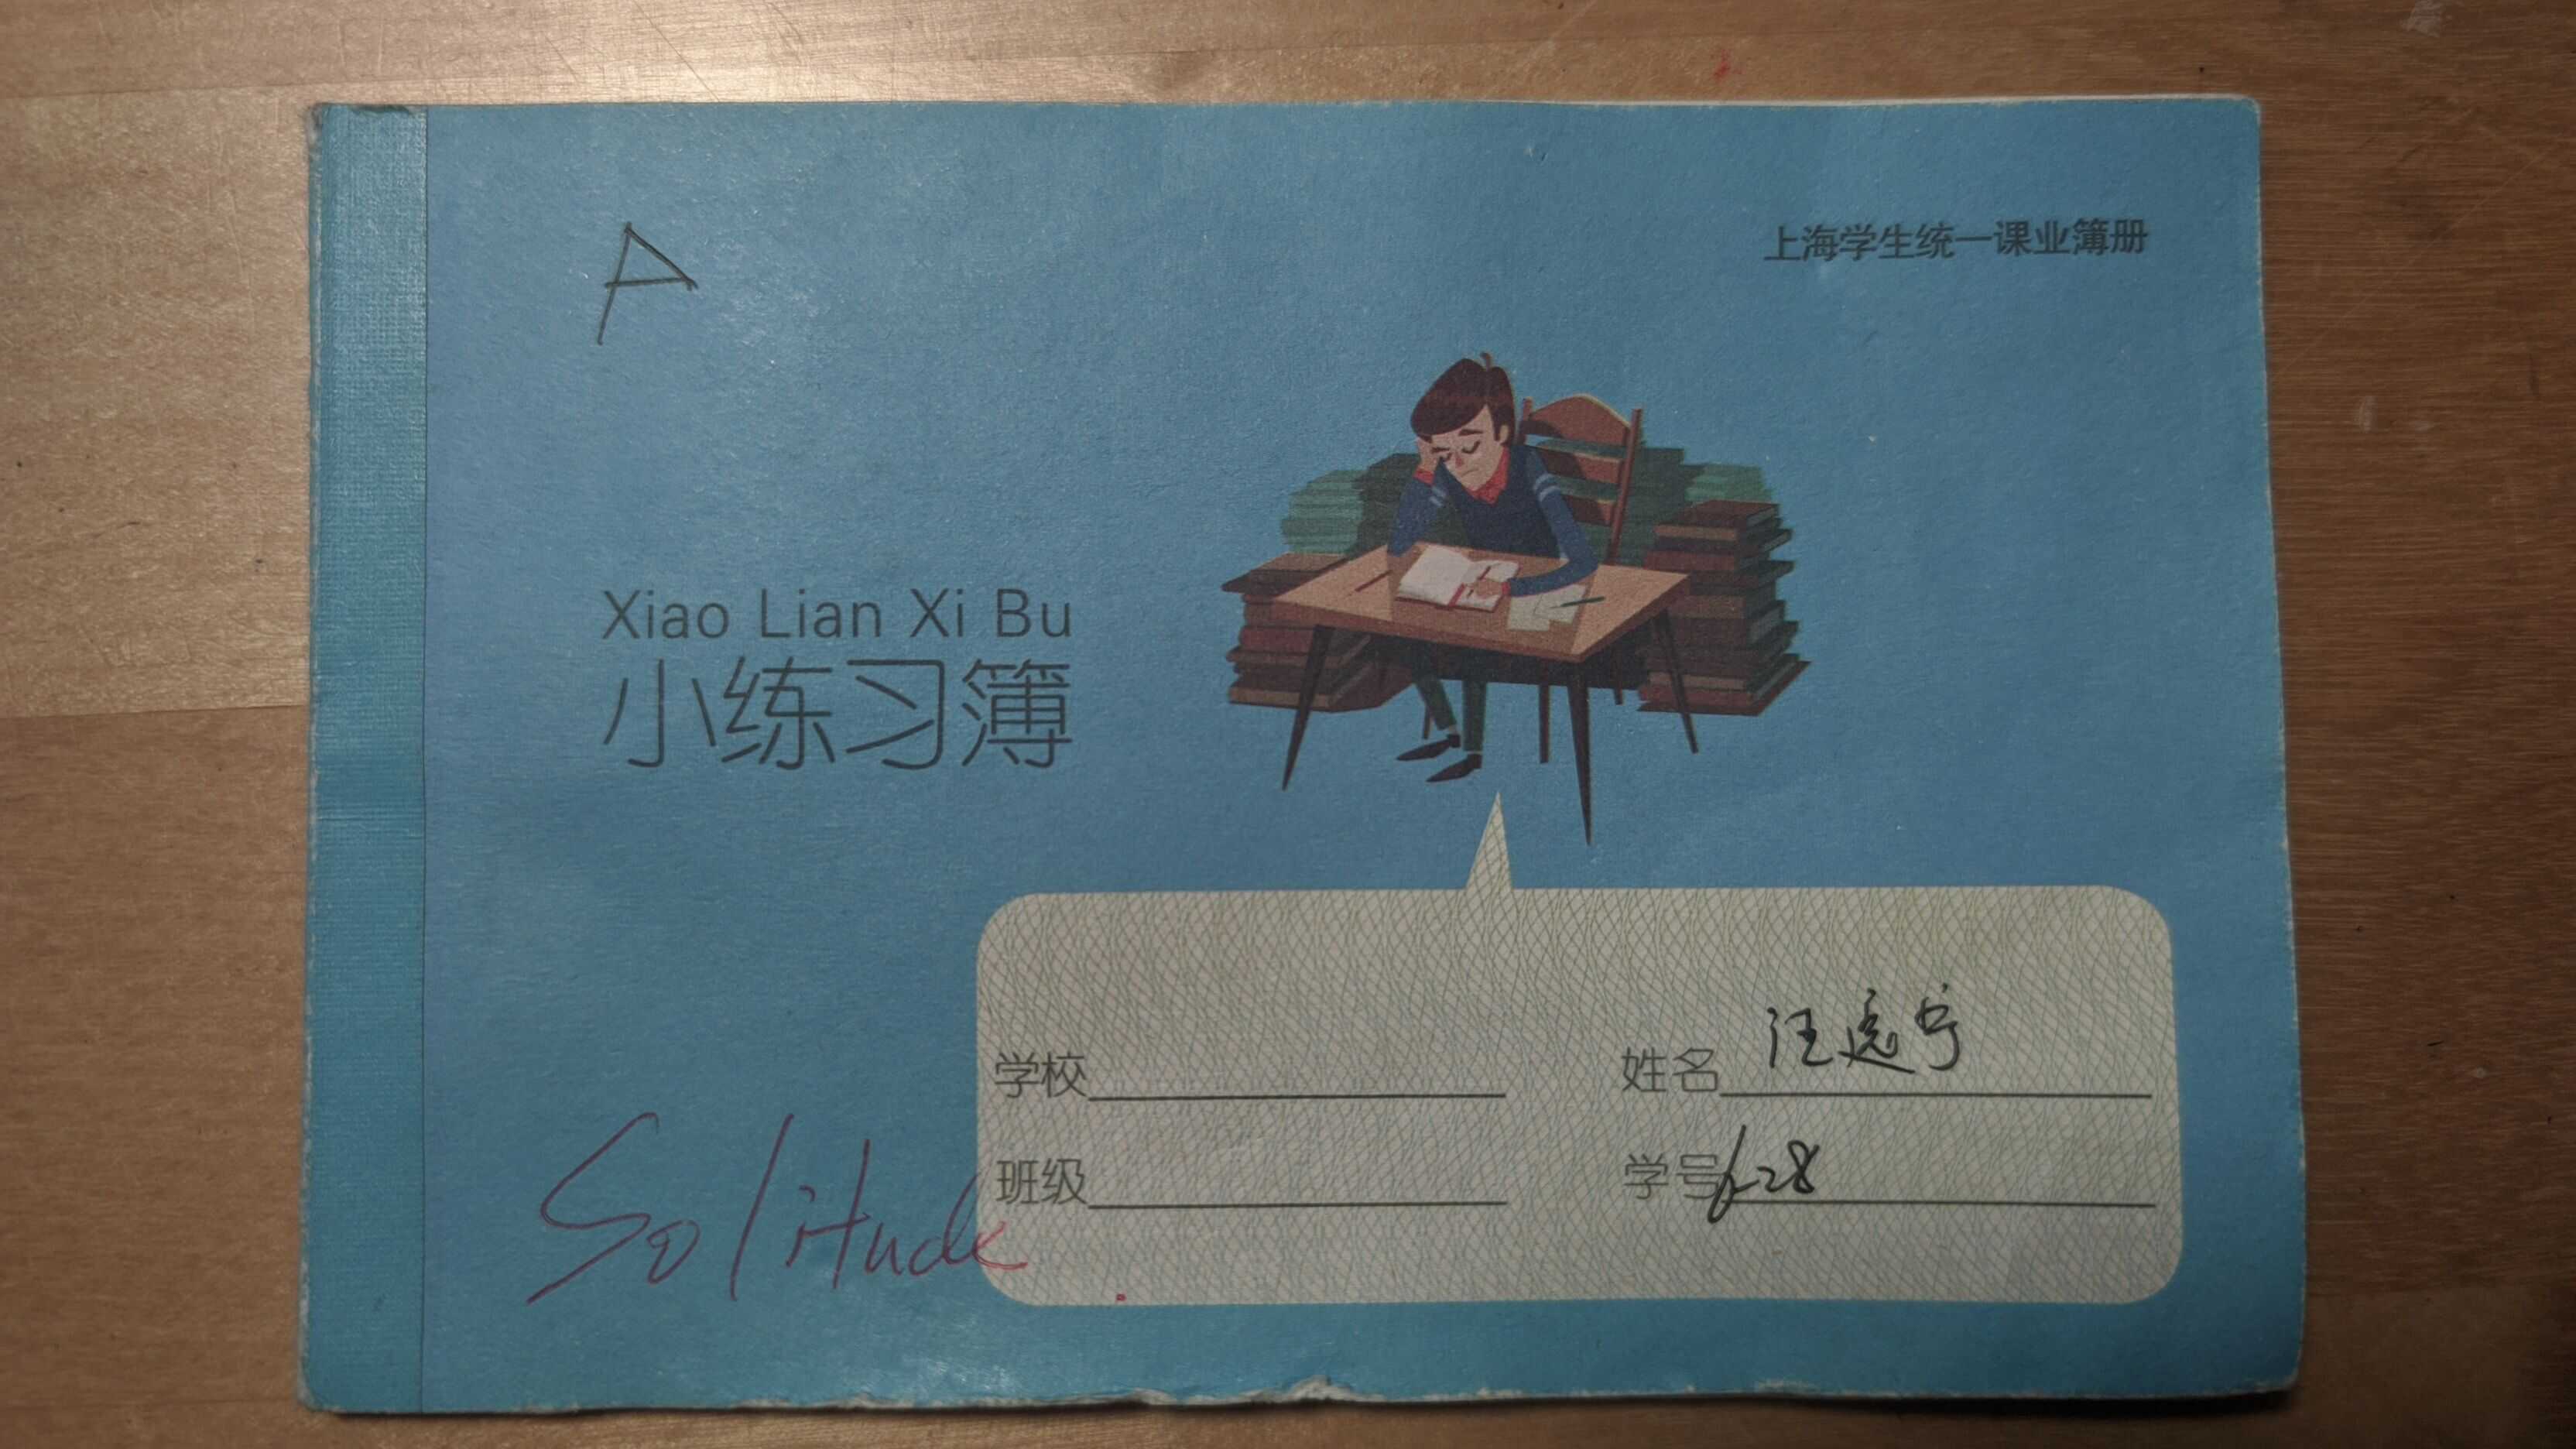 A
上海学生统一课业簿册
Xiao Lian Xi Bu
小练习簿
学校
姓名 汪逸宁
班级
学号 6-28
Solitude